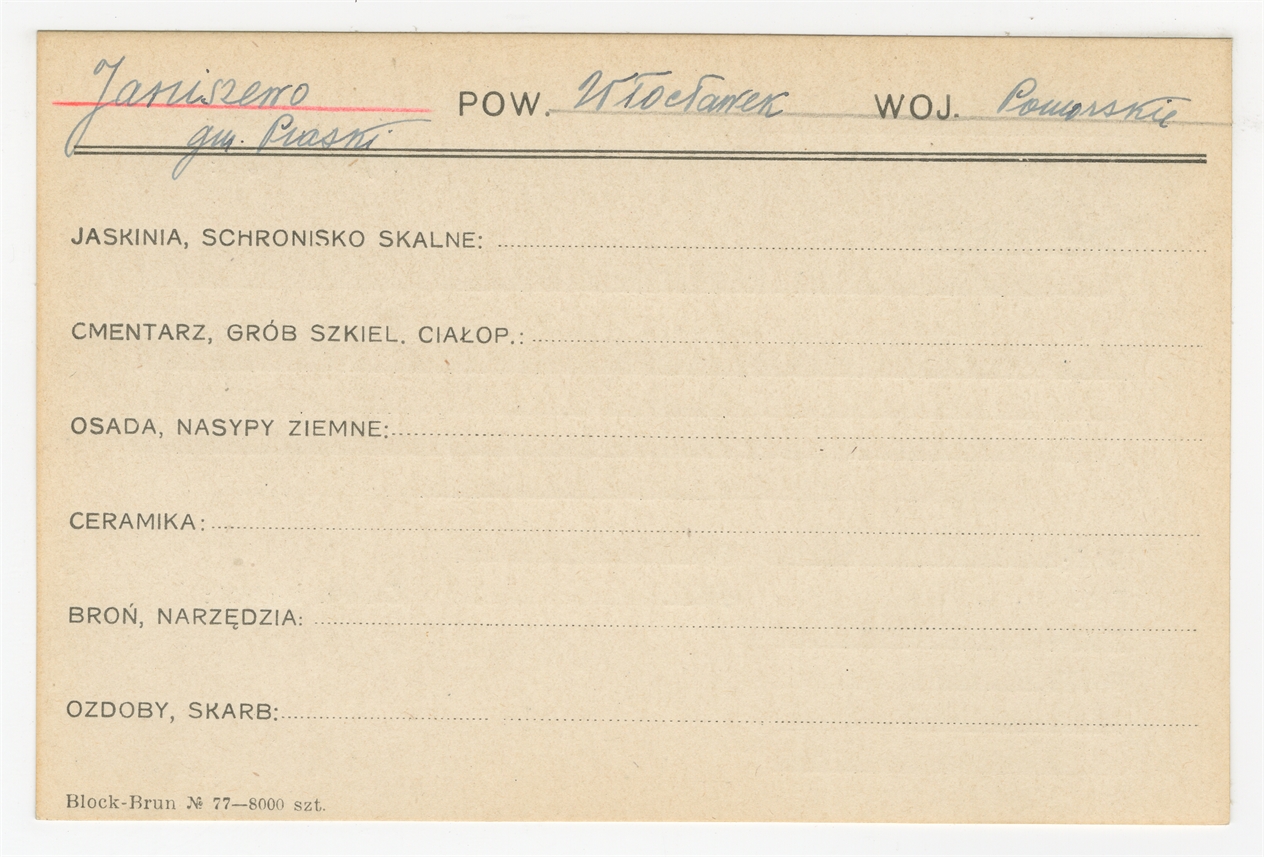 Januszewo POW. Włocławek WOJ. Pomorskie
gm. Piaski
JASKINIA, SCHRONISKO SKALNE:
CMENTARZ, GRÓB SZKIEL. CIAŁOP.:
OSADA, NASYPY ZIEMNE:
CERAMIKA:
BROŃ, NARZĘDZIA:
OZDOBY, SKARB:
Block-Brun № 77—8000 szt.